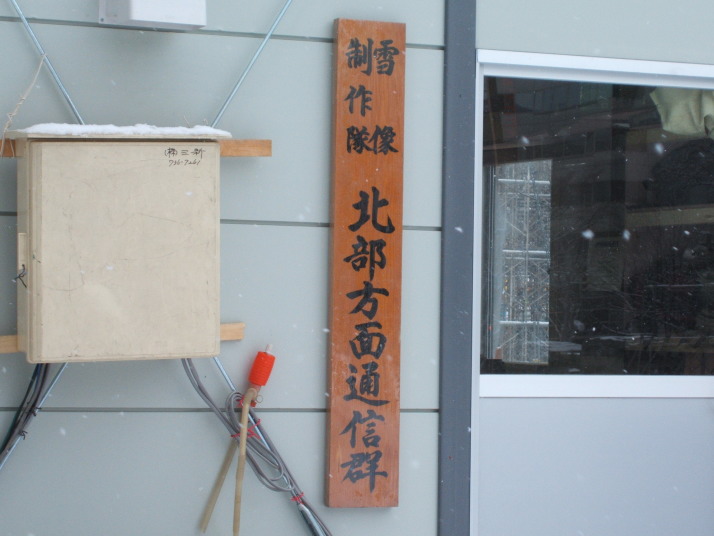 雪像
制作隊
北部方面通信群
(株)三新